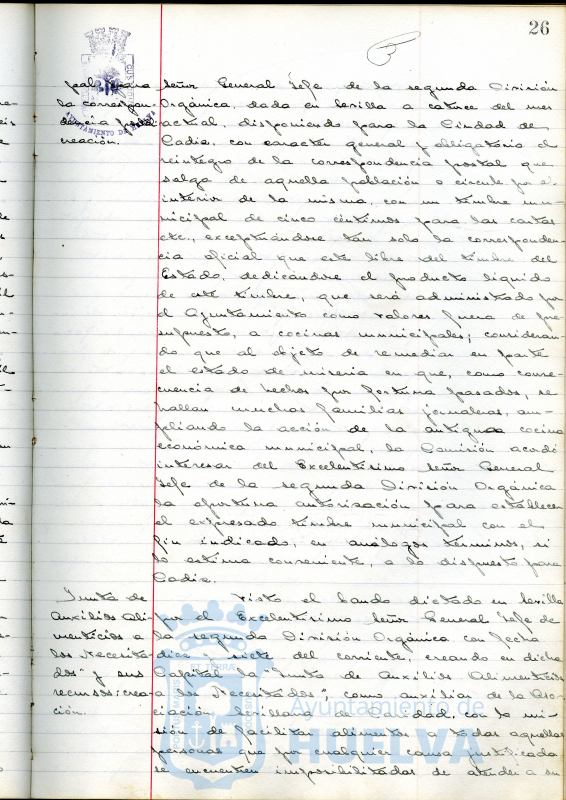 26
pal para
la correspon-
dencia postal
creación.
Señor General Jefe de la segunda División
Orgánica, dada en Sevilla a catorce del mes
actual, disponiendo para la Ciudad de
Cadiz, con caracter general y obligatorio el
reintegro de la correspondencia postal que
salga de aquella población o circule por el
interior de la misma, con un timbre mu-
nicipal de cinco céntimos para las cartas
etc., exceptuándose tan solo la corresponden-
cia oficial que este libre del timbre del
Estado, dedicándose el producto líquido
de este timbre, que será administrado por
el Ayuntamiento como valores fuera de pre-
supuesto, a cocinas municipales; consideran-
do que al objeto de remediar en parte
el estado de miseria en que, como conse-
cuencia de hechos por fortuna pasados, se
hallan muchas familias jornaleras, am-
pliando la acción de la antigua cocina
económica municipal, la Comisión acordó
interesar del Excelentísimo Señor General
Jefe de la segunda División Orgánica
la oportuna autorización para establecer
el expresado timbre municipal con el
fin indicado, en análogos términos, si
lo estima conveniente, a lo dispuesto para
Cadiz.
Junta de
Auxilios Ali-
menticios a
los Necesita-
dos" y sus
recursos: crea-
ción.
Visto el bando dictado en Sevilla
por el Excelentísimo Señor General Jefe de
la segunda División Orgánica con fecha
diez y siete del corriente, creando en dicha
Capital la "Junta de Auxilios Alimenticios
a los Necesitados", como auxiliar de la Aso-
ciación Sevillana de Caridad, con la mi-
sión de facilitar alimentos a todas aquellas
personas que por cualquier causa justificada
se encuentren imposibilitadas de atender a su
AYUNTAMIENTO DE
Ayuntamiento de
HUELVA